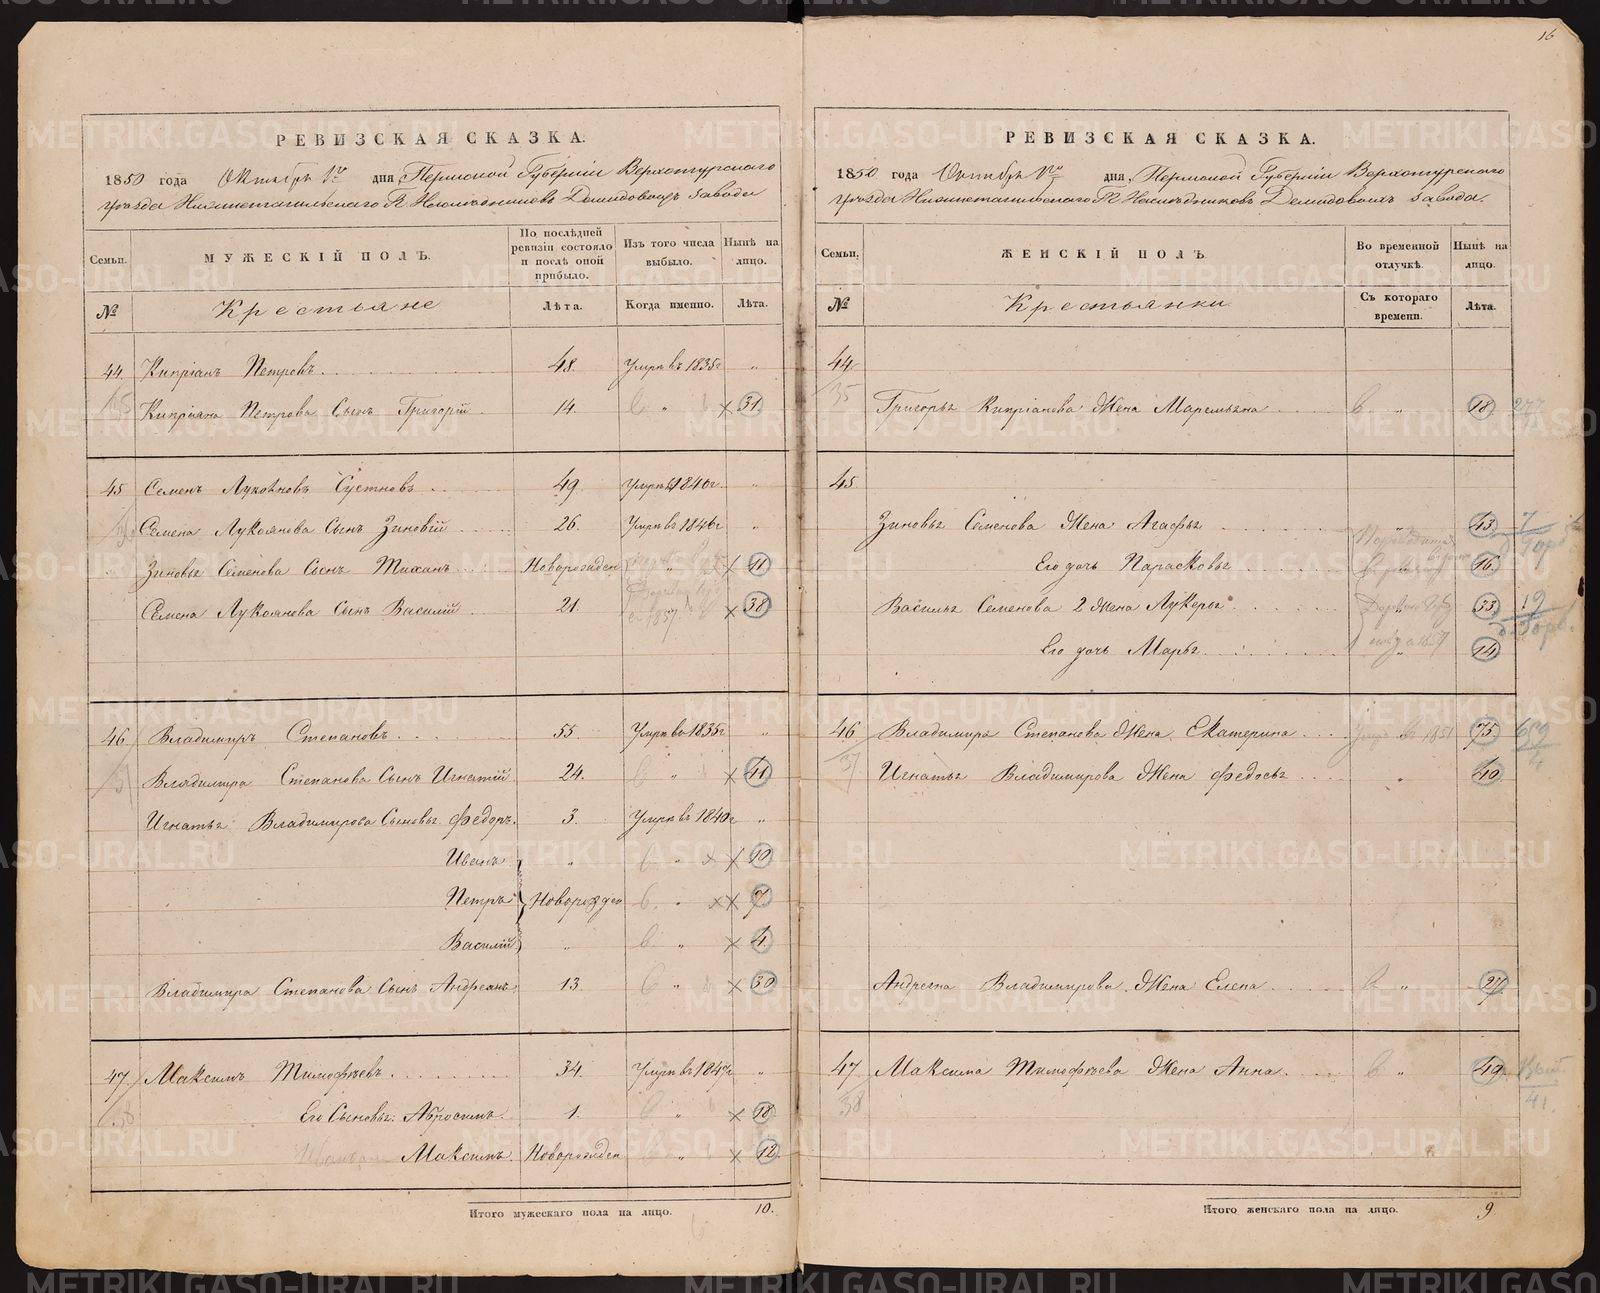 16
РЕВИЗСКАЯ СКАЗКА.
1850 года Октябрь 1го дня, Пермской Губерніи Верхотурскаго
Уѣзда Нижнетагильскаго Г. Наслѣдниковъ Демидовыхъ завода
Семьи.
МУЖЕСКІЙ ПОЛЪ.
По послѣдней ревизіи состояло и послѣ оной прибыло.
Изъ того числа выбыло.
Нынѣ на лицо.
№
Крестьяне
Лѣта.
Когда именно.
Лѣта.
44. Кипріанъ Петровъ 48. Умръ въ 1835г "
35 Кипріяна Петрова Сынъ Григорій 14. " 31
45 Семенъ Лукояновъ 49. Умръ 1840г "
Семена Лукоянова Сынъ Зиновій 26. Умръ въ 1846г "
Зиновья Семенова Сынъ Новорожден " 11
Семена Лукоянова Сынъ Василій 21. 1857 38
46 Владимиръ Степановъ 55. Умръ въ 1835г "
37 Владимира Степанова Сынъ Игнатій 24. " 41
Игнатья Владимирова Сыновья Федоръ. 3. Умръ въ 1840г "
Иванъ " " 10
Петръ Новорожден " 7
Василій " " 4
Владимира Степанова Сынъ Андреанъ 13. " 30
47 Максимъ Тимофѣевъ 34. Умръ въ 1847г "
38 Его Сыновья: Абросимъ 1. " 18
Максимъ. Новорожден " 12
Итого мужескаго пола на лицо. 10.
РЕВИЗСКАЯ СКАЗКА.
1850 года Октябрь 1го дня, Пермской Губерніи Верхотурскаго
Уѣзда Нижнетагильскаго Г. Наслѣдниковъ Демидовыхъ завода.
Семьи.
ЖЕНСКІЙ ПОЛЪ
Во временной отлучкѣ.
Нынѣ на лицо.
№
Крестьянки
Съ котораго времени.
Лѣта.
44
35 Григорья Кипріанова Жена Маремьяна " 18 27
45
Зиновья Семенова Жена Агафья " 43 7
Его дочь Парасковья " 16
Василья Семенова 2 Жена Лукерья " 33 19
Его дочь Марья " 14
46 Владимира Степанова Жена Екатерина 1851 75
37 Игнатья Владимирова Жена Федосья " 40
Андреяна Владимирова Жена Елена " 27
47 Максима Тимофѣева Жена Анна " 49
38 41.
Итого женскаго пола на лицо. 9
METRIKI.GASO-URAL.RU